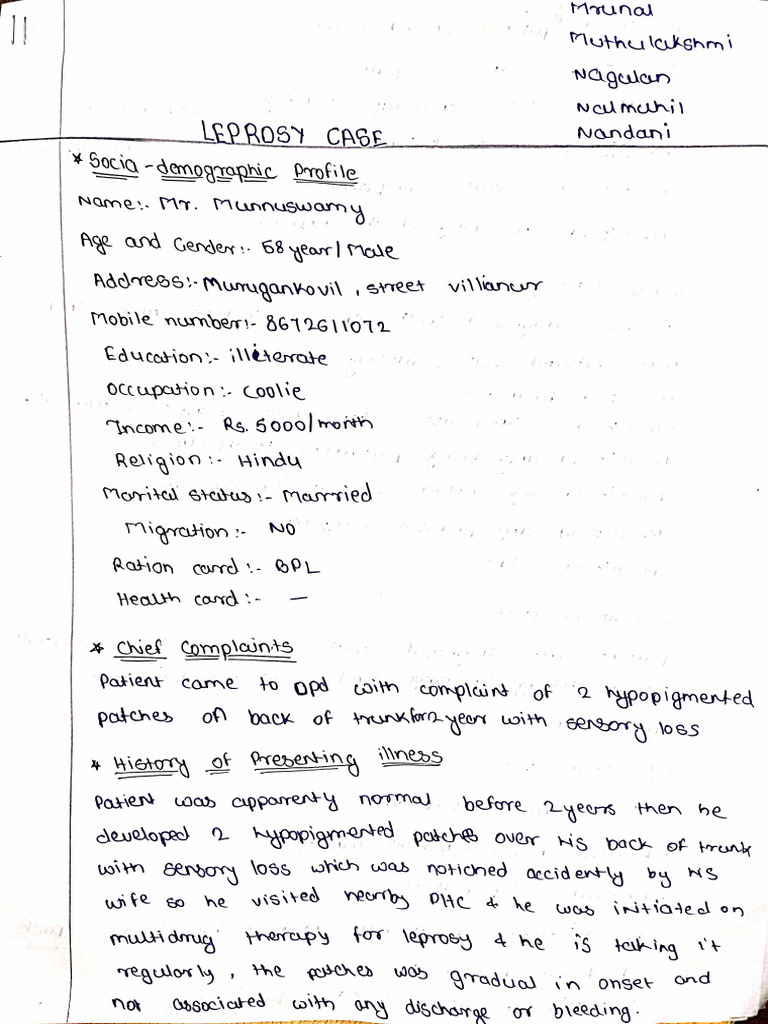 11
Mrunal
Muthulakshmi
Nagulan
Nalmuhil
Nandani
LEPROSY CASE
* Socia-demographic Profile
Name:- Mr. Munnuswamy
Age and Gender:- 58 year/Male
Address:- Murugankovil, street villianur
Mobile number:- 8672611072
Education:- illiterate
Occupation:- Coolie
Income:- Rs. 5000/month
Religion:- Hindu
Marital status:- Married
Migration:- NO
Ration card:- BPL
Health card:- —
* Chief Complaints
Patient came to opd with complaint of 2 hypopigmented
patches on back of trunk for 2 year with sensory loss
* History of Presenting illness
Patient was apparenty normal before 2 years then he
developed 2 hypopigmented patches over his back of trunk
with sensory loss which was notiched accidently by his
wife so he visited nearby PHC & he was initiated on
multidrug therapy for leprosy & he is taking it
regularly, the patches was gradual in onset and
not associated with any discharge or bleeding.